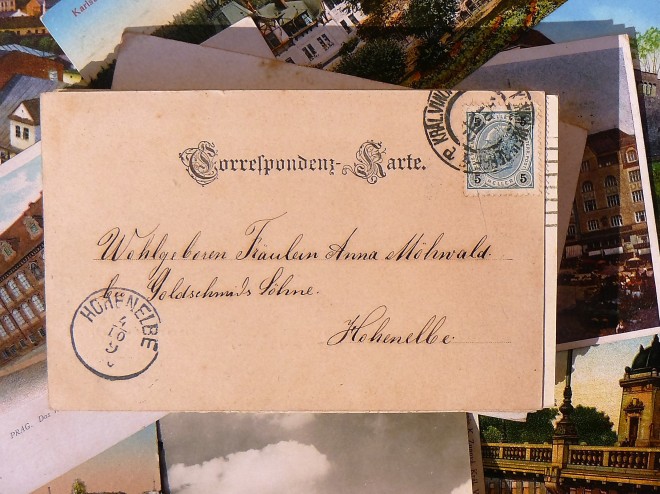 Karls
Correspondenz-Karte.
P KRÁL. VINO
5 5
HELLER
Wohlgeboren Fräulein Anna Möhwald.
bei Goldschmids Söhne.
Hohenelbe
HOHENELBE
4
10
9
PRAG. Das